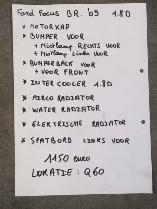 Ford Focus BR. '09 1.8D
* MOTORKAP
* BUMPER VOOR
+ Mistlamp RECHTS VOOR
+ Mistlamp Links VOOR
* BUMPERBALK VOOR
+ VOOR FRONT
* INTERCOOLER 1.8D
* AIRCO RADIATOR
* WATER RADIATOR
* ELEKTRISCHE RADIATOR
* SPATBORD LINKS VOOR
1150 euro
LOKATIE: Q60